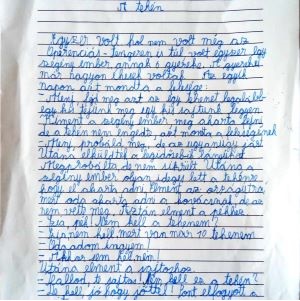 A tehén
Egyszer volt hol nem volt még az
Óperenciás-Tengeren is túl volt egyszer egy
szegény ember annak gyereke. A gyerekei
már nagyon éhesek voltak. Az egyik
napon azt mondta a felesége:
- Menj fejd meg azt az egy tehenet legalább
egy kis tejünk
Kiment a szegény ember meg akarta fejni
de a tehén nem engedte, azt mondta a feleségének
- Menj próbáld meg, de az ugyanúgy járt
Utána elküldték a
Megpróbálta, de nem sikerült. Utána a
szegény ember olyan ideges lett a tehénre
hogy el akarta adni. Elment az országútra
mert oda akarta adni a kovácsnak, de az
nem vette meg. Aztán elment a pékhez
- Te pék! Nem kell a tehenem?
- Nekem nem kell mert van már 10 tehenem
- Odaadom ingyen!
- Akkor sem kell nekem!
Utána elment a sajtoshoz.
- Hallod, te sajtos! Nem kell ez a tehén?
- De kell, jó hogy jöttél! Pont elfogyott a